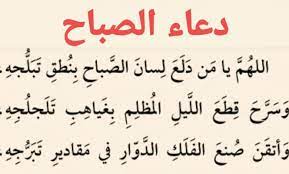 دعاء الصباح
اللهُمَّ يا مَن دَلَعَ لِسانَ الصَّباحِ بِنُطقِ تَبَلُّجِهِ،
وَسَرَّحَ قِطَعَ اللَّيلِ المُظلِمِ بِغَياهِبِ تَلَجلُجِهِ،
وَأتقَنَ صُنعَ الفَلَكِ الدَّوّارِ في مَقاديرِ تَبَرُّجِهِ،